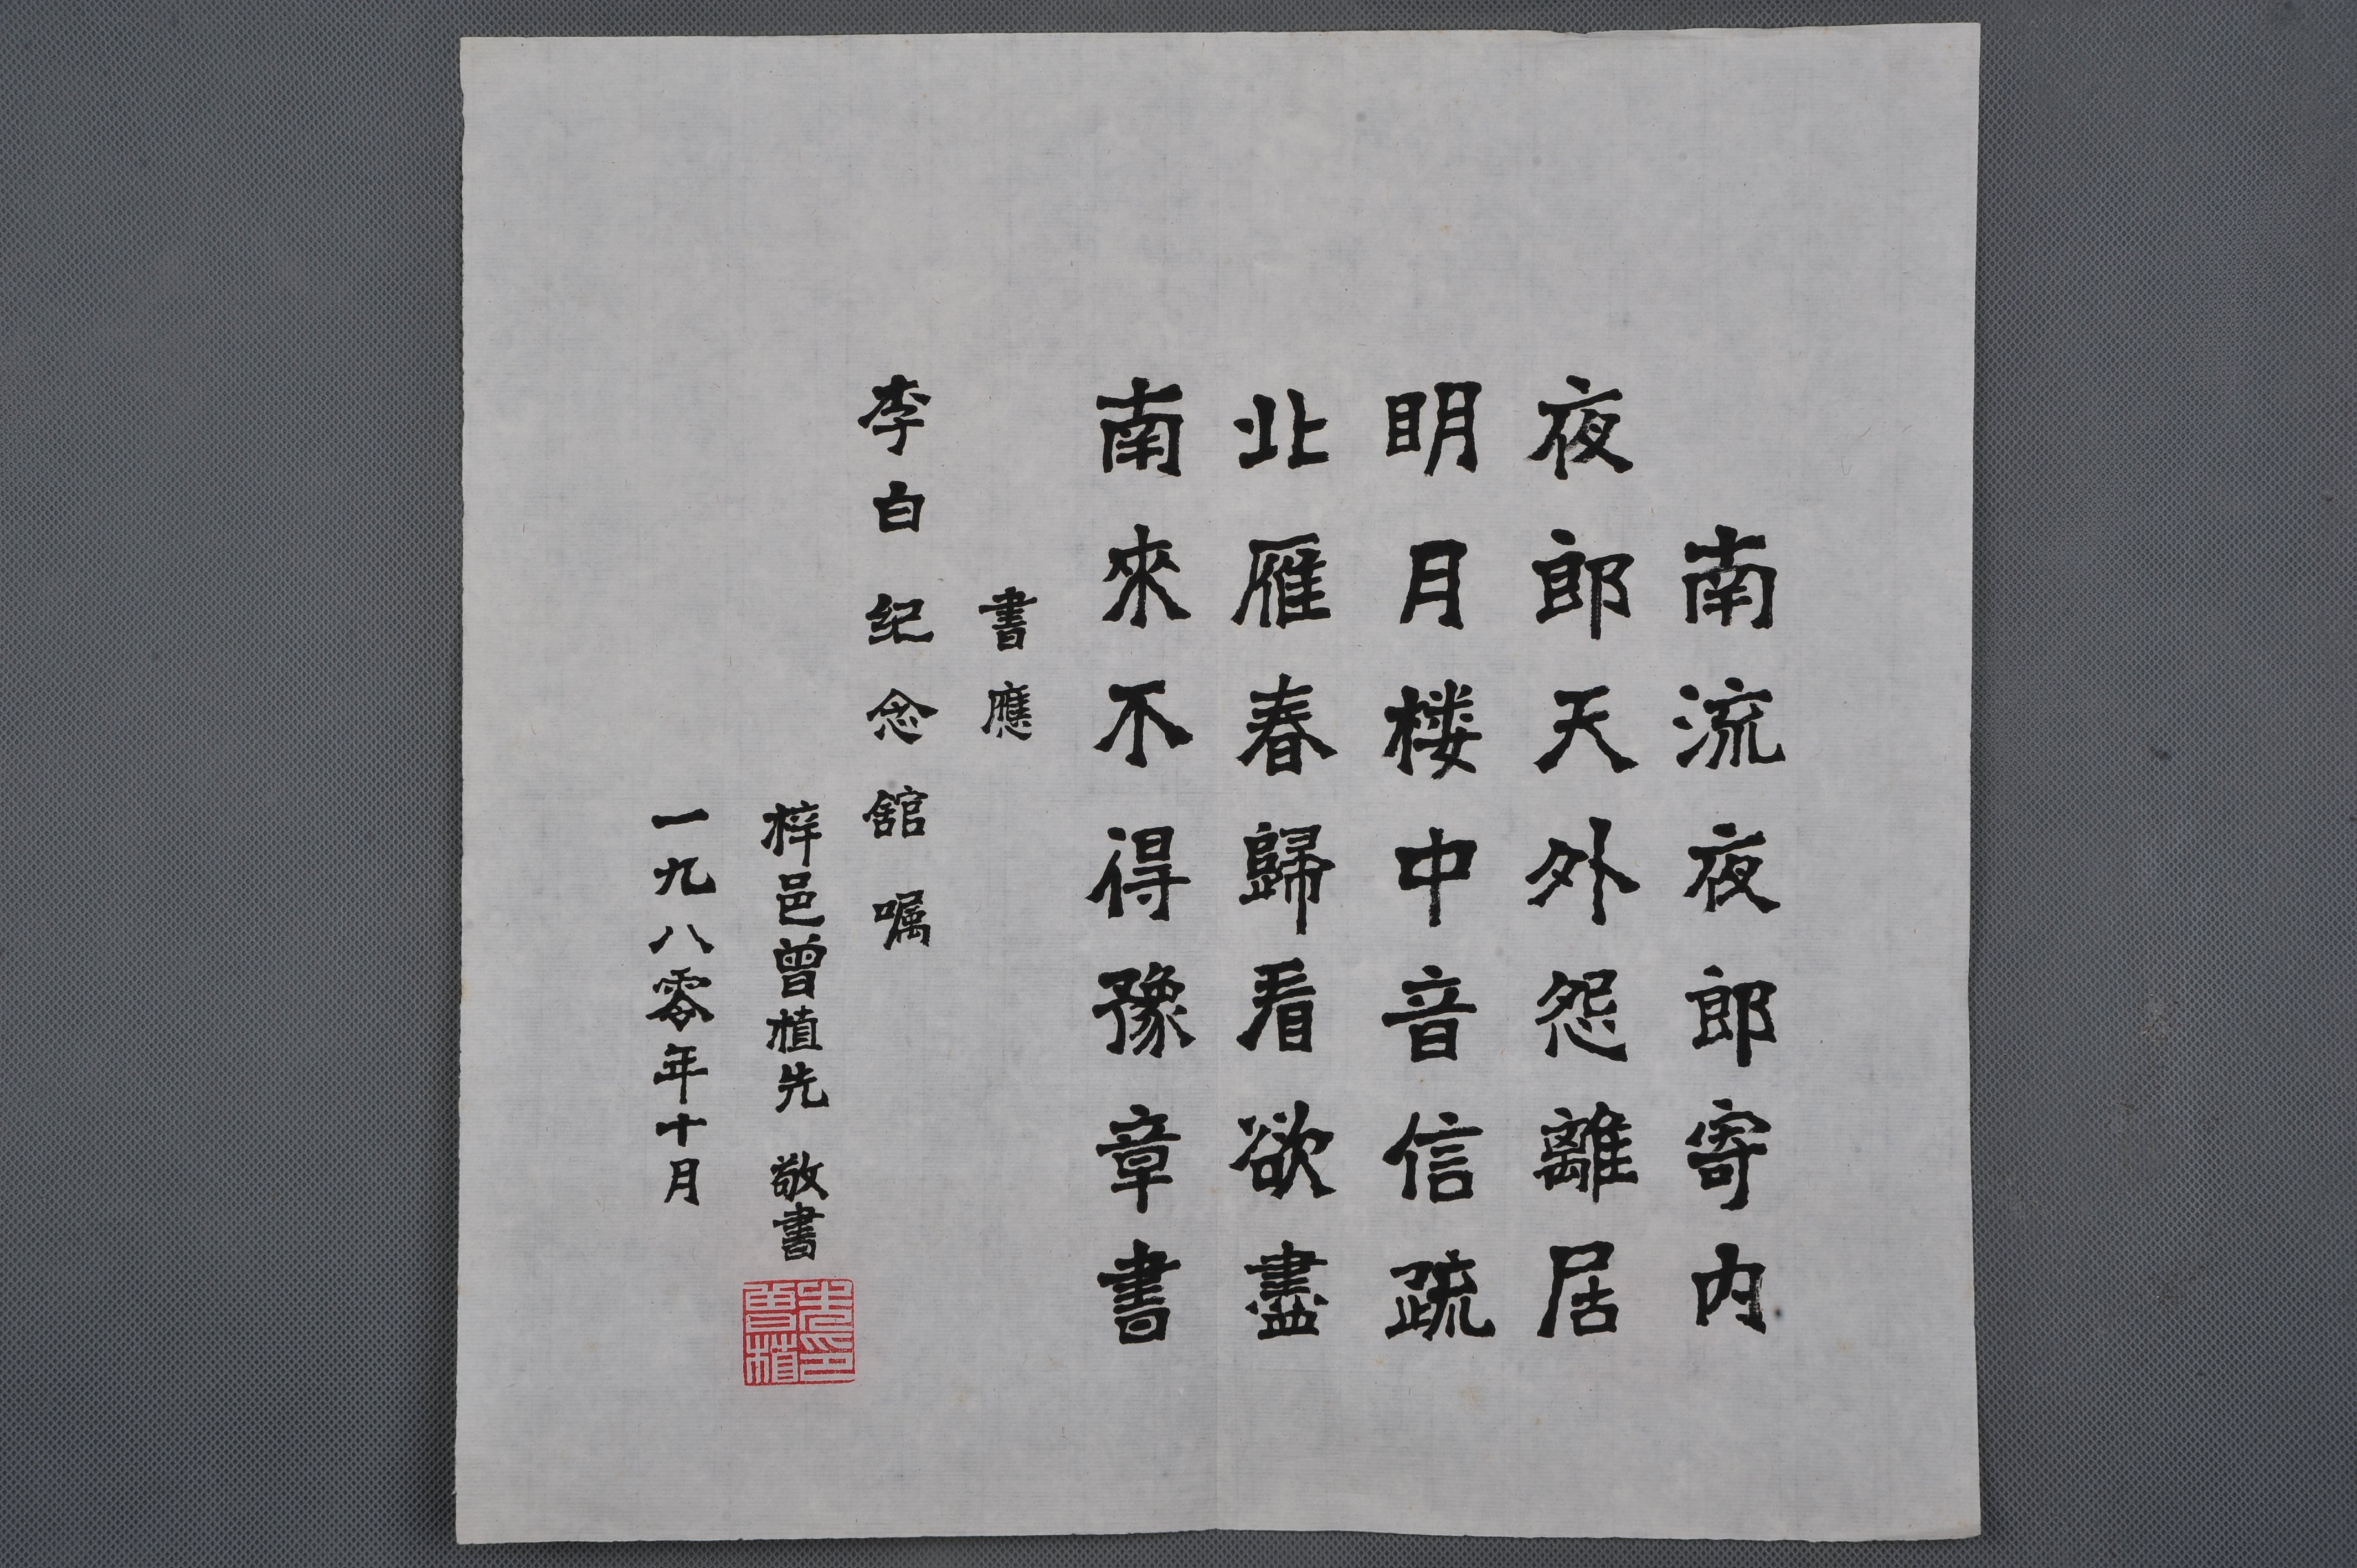 南流夜郎寄内
夜郎天外怨離居
明月楼中音信疏
北雁春歸看欲盡
南來不得豫章書
書應
李白纪念舘嘱
梓邑曾植先 敬書
一九八零年十月
曾植先印